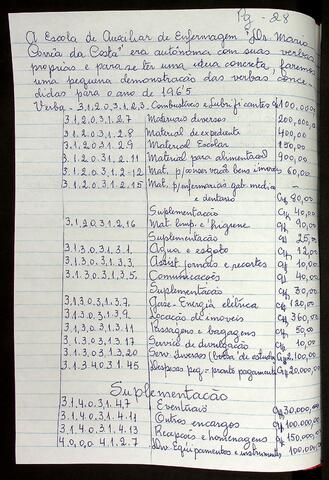 Pg - 28
A Escola de Auxiliar de Enfermagem "Dr. Mario
Corrêa da Costa" era autônoma com suas verbas
proprias e para se têr uma ideia concreta, faremos
uma pequena demonstração das verbas conce
didas para o ano de 1965
Verba - 3.1.2.0.3.1.2.3. Combustiveis e Lubrificantes Cr$ 100.000,
3.1.2.0.3.1.2.7 Materiais diversos 200.000,00
3.1.2.0.3.1.2.8 Material de expediente 400,00
3.1.2.0.3.1.2.9 Material Escolar 150,00
3.1.2.0.3.1.2.11 Material para alimentação 900,00
3.1.2.0.3.1.2-12 Mat. p/conservação bens imoveis 60,00
3.1.2.0.3.1.2.15 Mat. p/enfermarias gab. medico
e dentario Cr$ 80,00
Suplementação Cr$ 40,00
3.1.2.0.3.1.2.16 Mat. limp. e higiene Cr$ 90,00
Suplementação Cr$ 25,00
3.1.3.0.3.1.3.1. Água e esgoto Cr$ 12,00
3.1.3.0.3.1.3.3. Assist. jornais e recortes Cr$ 10,00
3.1.3.0.3.1.3.5. Comunicações Cr$ 40,00
Suplementação Cr$ 30,00
3.1.3.0.3.1.3.7. Gase-Energia elétrica Cr$ 120,00
3.1.3.0.3.1.3.9 Locação de imoveis Cr$ 360,00
3.1.3.0.3.1.3.11 Passagens e bagagens Cr$ 50,00
3.1.3.0.3.1.3.17 Serviço de divulgação Cr$ 10,00
3.1.3.0.3.1.3.20 Serv. diversos (bolsa de estudos) Cr$ 2.100,00
3.1.3.4.0.3.1.45 Despesas peq-pronto pagamento Cr$ 20.000,00
Suplementação
3.1.4.0.3.1.4.7 Eventuais Cr$ 30.000,00
3.1.4.0.3.1.4.11 Outros encargos Cr$ 100.000,00
3.1.4.0.3.1.4.13 Recepções e homenagens Cr$ 150.000,
4.0.0.0 4.1.2.7 Div. Equipamentos e instrumentos 100.000,